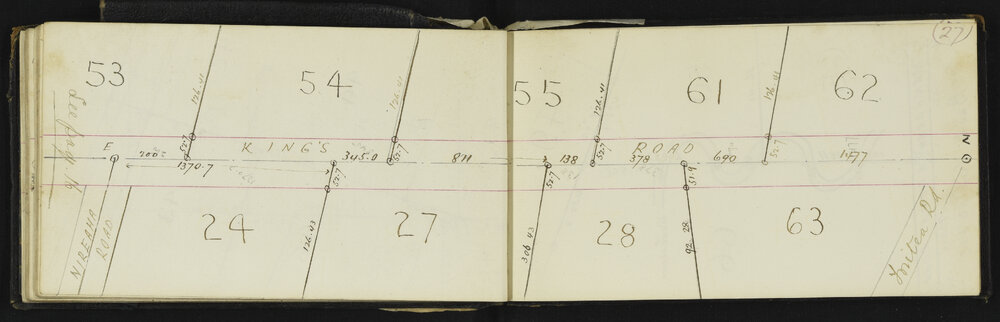 (27)
53 54 55 61 62
126.41 126.41 126.41 126.41
see page 16
KING'S ROAD
E 200 1370.7 345.0 811 138 378 690 N
52.7 52.7 52.7 52.7 52.7 51.9
24 27 28 63
126.43 306.43 92.28
NIREAHA
ROAD
Initea Rd.